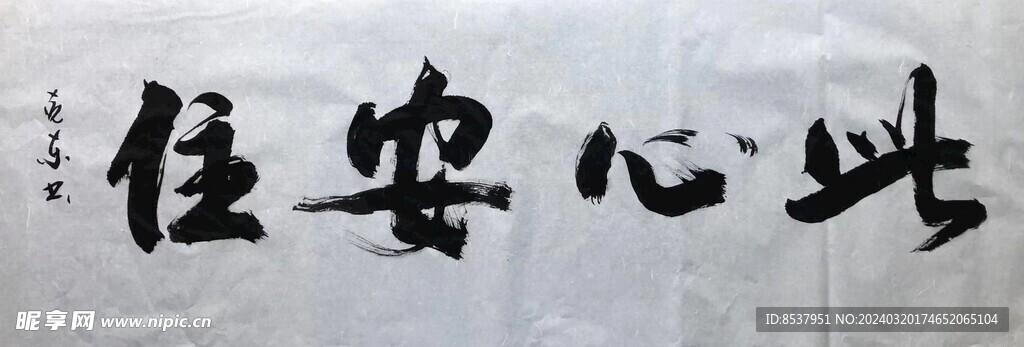 此心安住
克东书
昵享网 www.nipic.cn
ID:8537951 NO:20240320174652065104